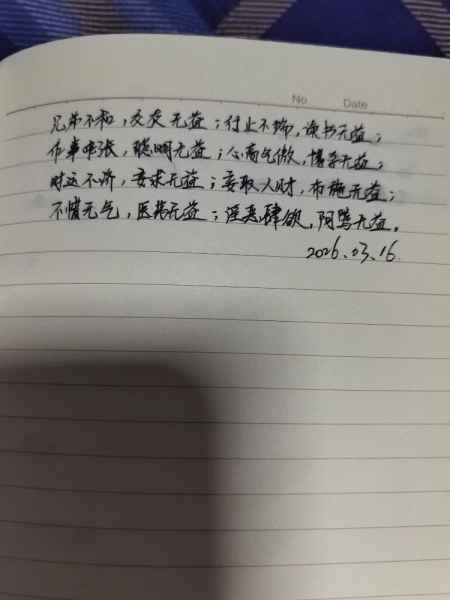 No Date
兄弟不和，交友无益；行止不端，读书无益；
作事乖张，聪明无益；心高气傲，博学无益；
时运不济，妄求无益；妄取人财，布施无益；
不惜元气，医药无益；淫恶肆欲，阴骘无益。
2026.03.16